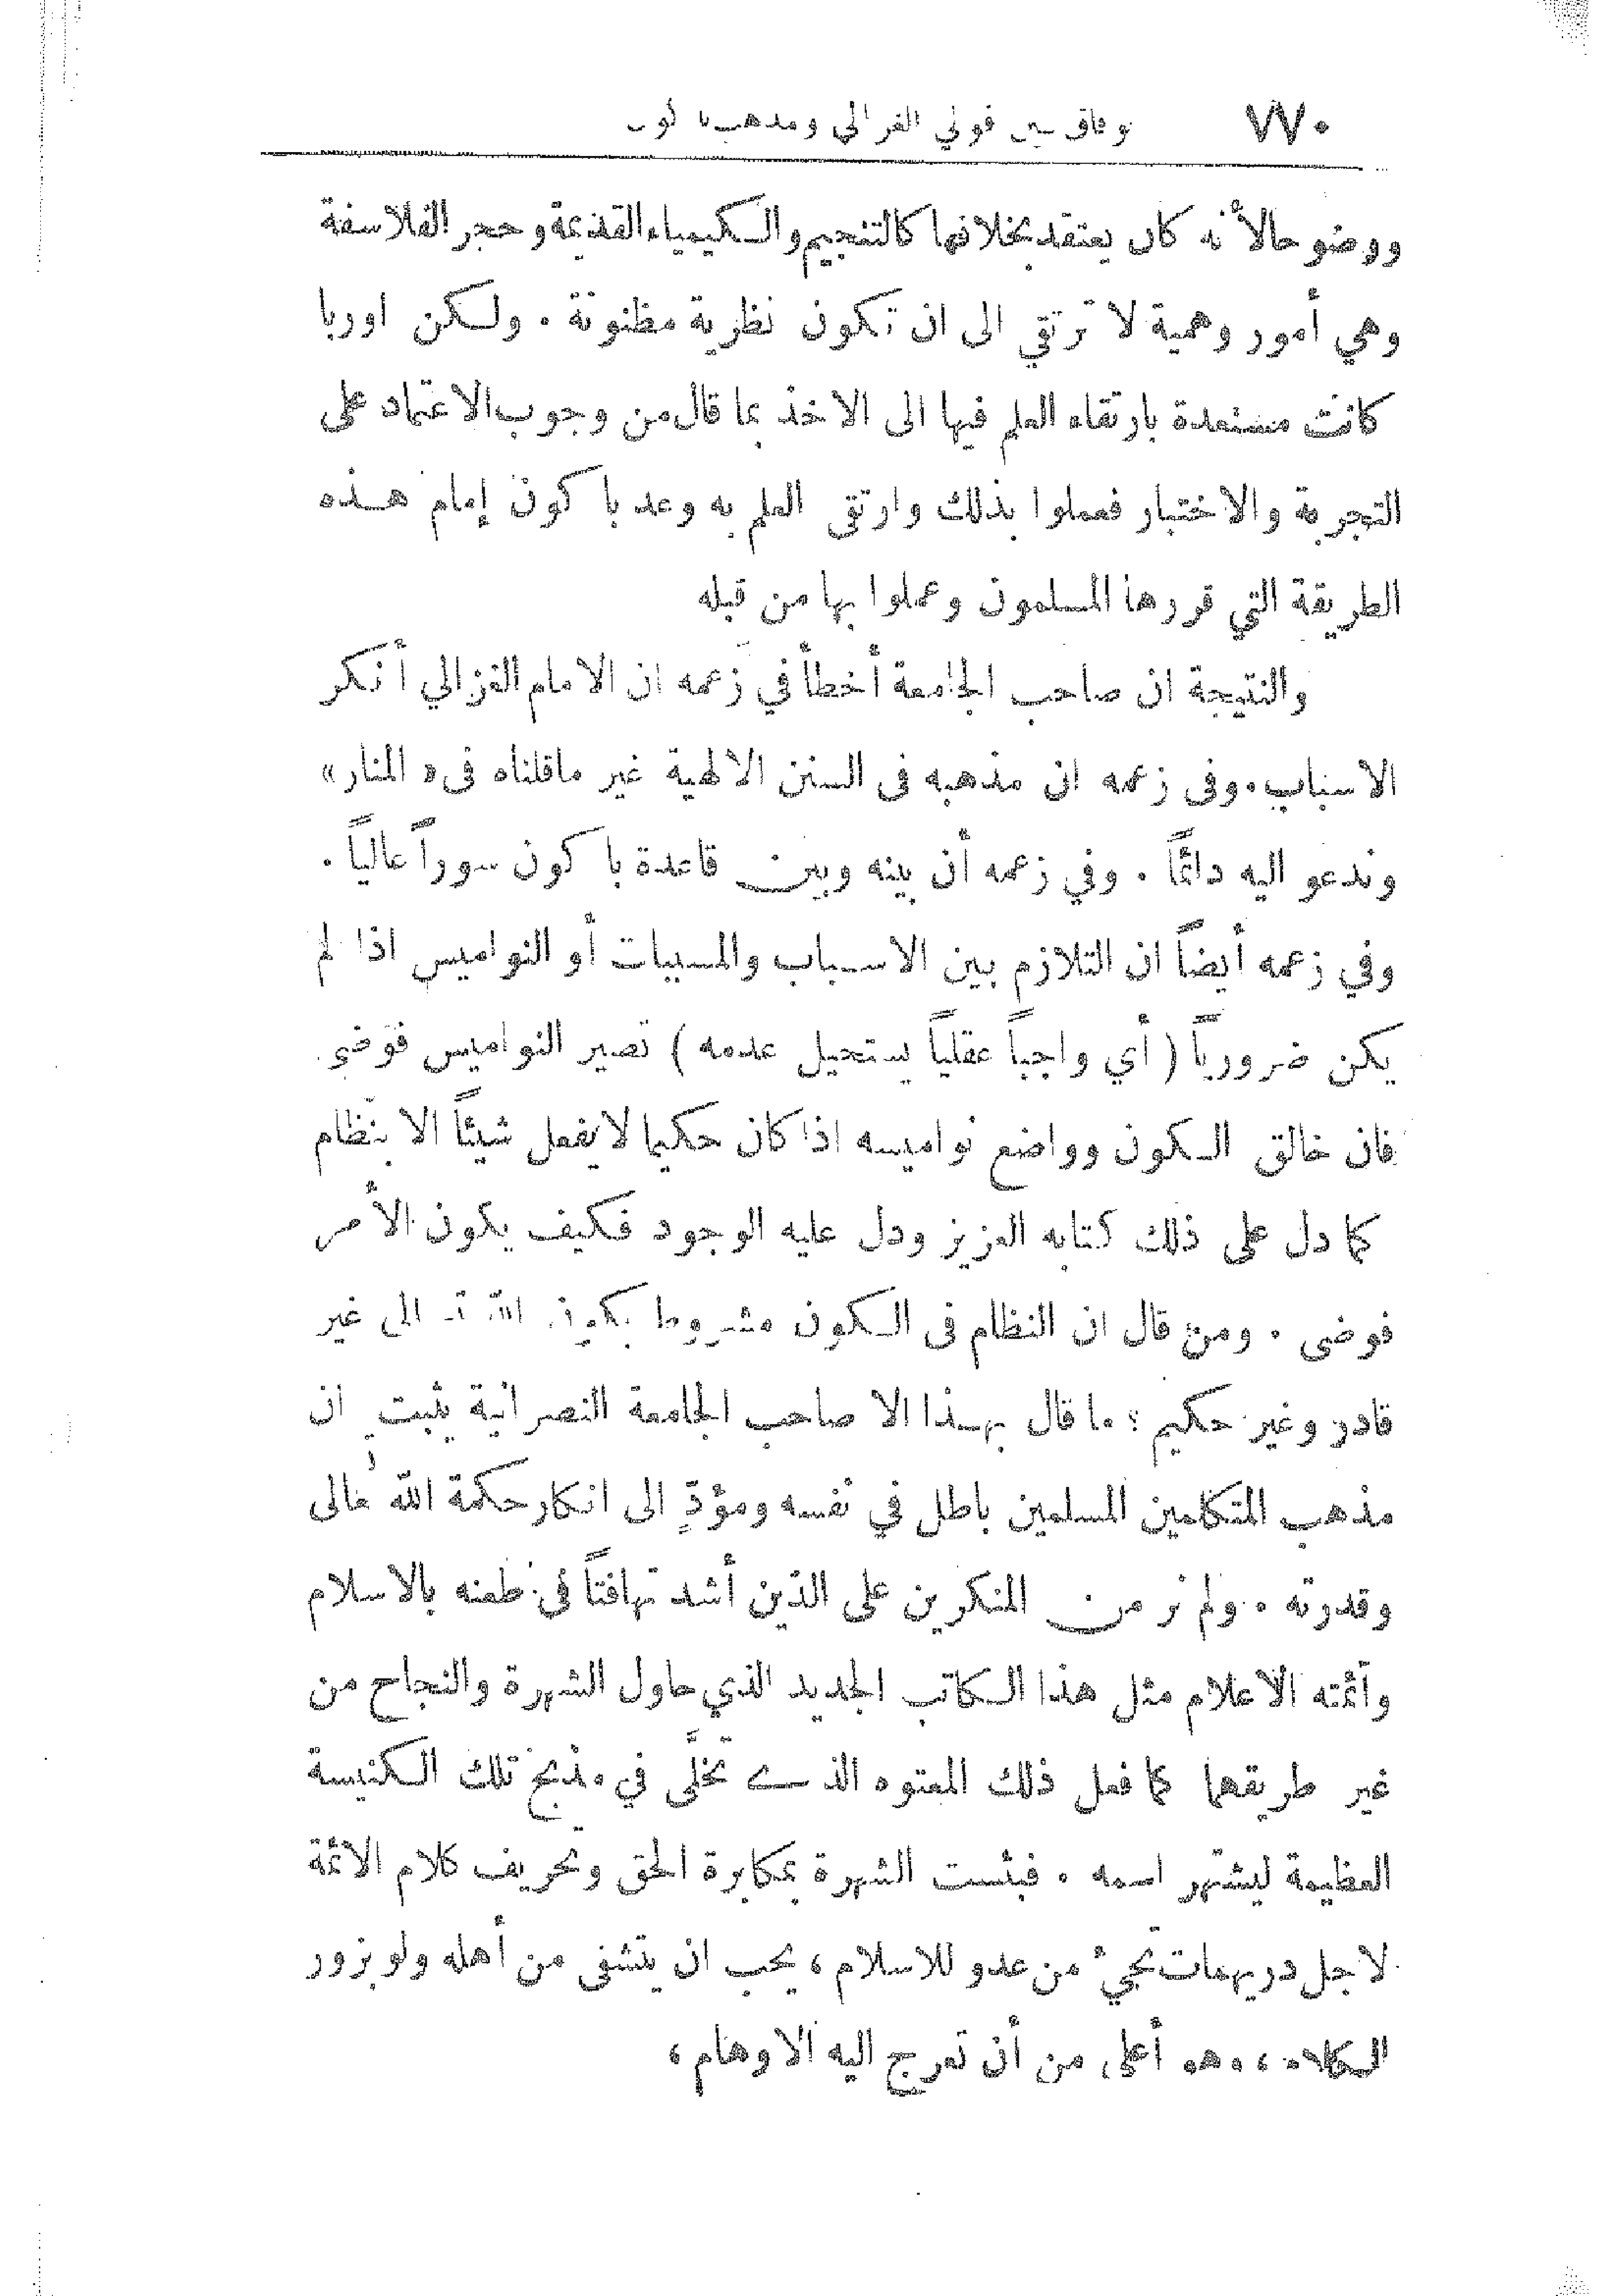 ٧٧٠ قولي الغزالي ومذهب باكون
ووضوحا لأنه كان يعتقد بخلافها كالتنجيم والكيمياء القديمة وحجر الفلاسفة
وهي أمور وهمية لا ترتقي الى ان تكون نظرية مظنونة . ولكن اوربا
كانت مستعدة بارتقاء العلم فيها الى الاخذ بما قال من وجوب الاعتماد على
التجربة والاختبار فعملوا بذلك وارتقى العلم به وعد باكون إمام هذه
الطريقة التي قررها المسلمون وعملوا بها من قبله
والنتيجة ان صاحب الجامعة أخطأ في زعمه ان الامام الغزالي أنكر
الاسباب . وفى زعمه ان مذهبه فى السنن الالهية غير ماقلناه فى « المنار »
وندعو اليه دائماً . وفي زعمه أن بينه وبين قاعدة باكون سوراً عالياً .
وفي زعمه أيضاً ان التلازم بين الاسباب والمسببات أو النواميس اذا لم
يكن ضرورياً ( أي واجباً عقلياً يستحيل عدمه ) تصير النواميس فوضى
فان خالق الكون وواضع نواميسه اذا كان حكيما لا يفعل شيئاً الا بنظام
كما دل على ذلك كتابه العزيز ودل عليه الوجود فكيف يكون الأمر
فوضى . ومن قال ان النظام فى الكون مشروط بكون الله تعالى غير
قادر وغير حكيم ؟ ما قال بهذا الا صاحب الجامعة النصرانية يثبت ان
مذهب المتكلمين المسلمين باطل في نفسه ومؤدٍّ الى انكار حكمة الله تعالى
وقدرته . ولم نر من المنكرين على الدين أشد تهافتاً في طعنه بالاسلام
وأئمته الاعلام مثل هذا الكاتب الجديد الذي حاول الشهرة والنجاح من
غير طريقهما كما فعل ذلك المعتوه الذي تخلَّى في مذبح تلك الكنيسة
العظيمة ليشتهر اسمه . فبئست الشهرة بمكابرة الحق وتحريف كلام الائمة
لاجل دريهمات تجيء من عدو للاسلام ، يحب ان يتشفى من أهله ولو بزور
الكلام ، وهو أعلى من أن تعرج اليه الاوهام ،